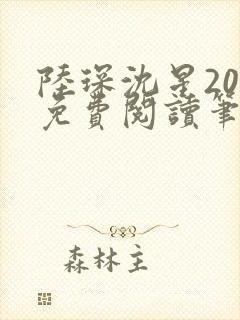 陸琛沈星20
免費閱讀筆
森林主